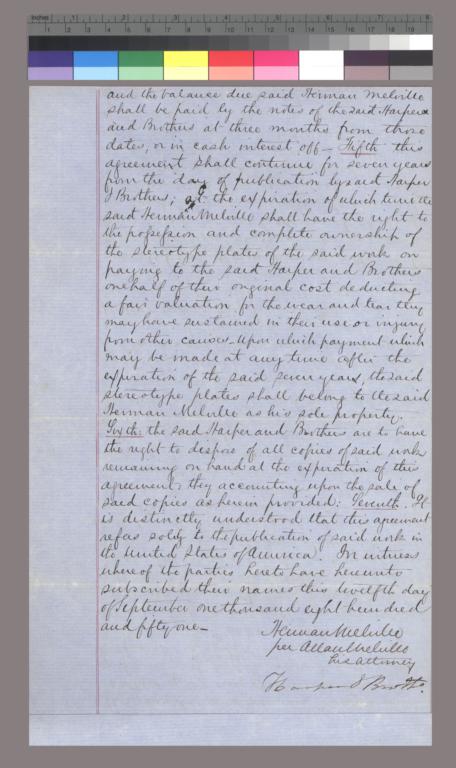 and the balance due said Herman Melville
shall be paid by the notes of the said Harper
and Brothers at three months from those
dates, or in cash interest off— Fifth this
agreement shall continue for seven years
from the day of publication by said Harper
& Brothers; at the expiration of which time the
said Herman Melville shall have the right to
the possession and complete ownership of
the stereotype plates of the said work on
paying to the said Harper and Brothers
one half of their original cost deducting
a fair valuation for the wear and tear they
may have sustained in their use or injury
from other causes— upon which payment which
may be made at any time after the
expiration of the said seven years, the said
stereotype plates shall belong to the said
Herman Melville as his sole property.
Sixth: the said Harper and Brothers are to have
the right to dispose of all copies of said work
remaining on hand at the expiration of this
agreement they accounting upon the sale of
said copies as herein provided: Seventh. It
is distinctly understood that this agreement
refers solely to the publication of said work in
the United States of America. In witness
whereof the parties hereto have hereunto
subscribed their names this twelfth day
of September one thousand eight hundred
and fifty one—
Herman Melville
per Allan Melville
his attorney
Harper & Brothers.